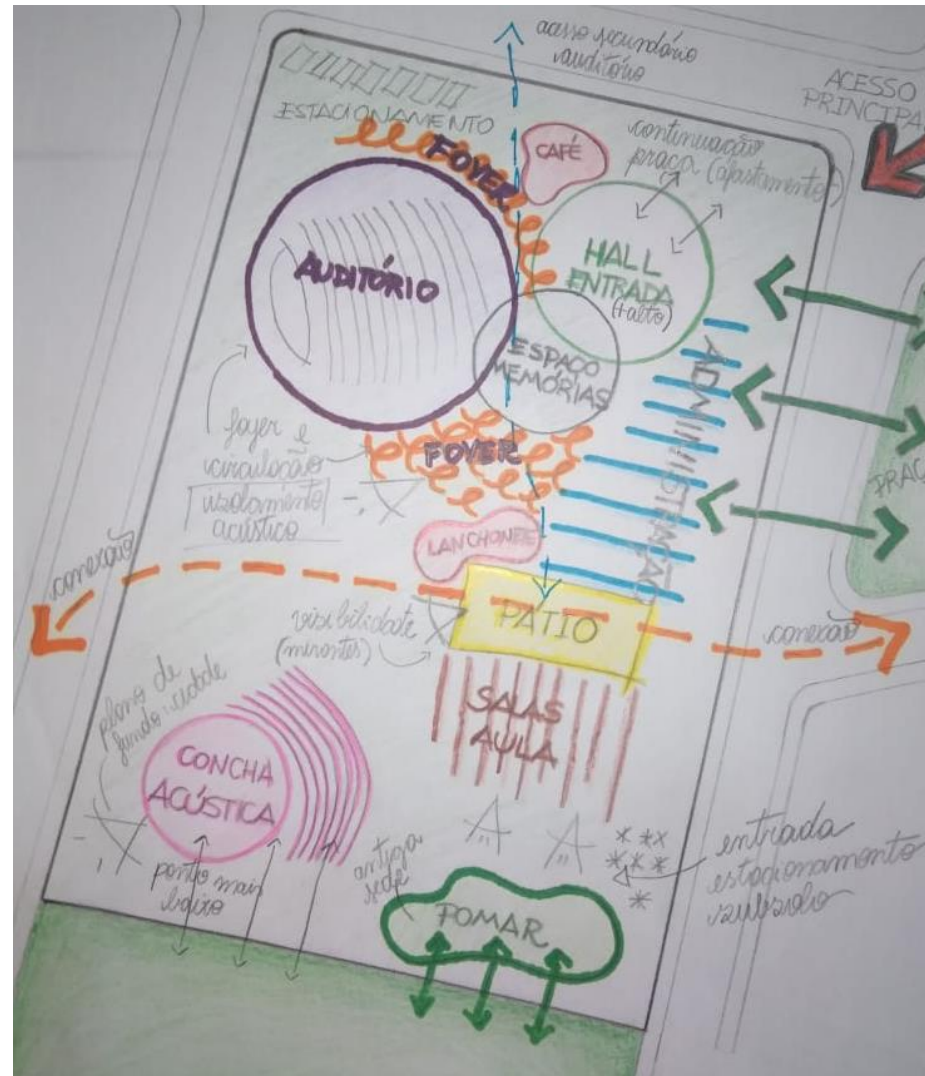 acesso secundário
auditório
ACESSO
PRINCIPAL
ESTACIONAMENTO
FOYER
CAFÉ
continuação
praça (afastamento)
AUDITÓRIO
HALL
ENTRADA
(+alto)
ESPAÇO
MEMÓRIAS
ADMINISTRAÇÃO
PRAÇ
foyer e
circulação
isolamento
acústico
FOYER
LANCHONETE
conexão
PÁTIO
conexão
visibilidade
(mirantes)
SALAS
AULA
plano de
fundo: cidade
CONCHA
ACÚSTICA
ponto mais
baixo
antiga
sede
POMAR
entrada
estacionamento
subsolo